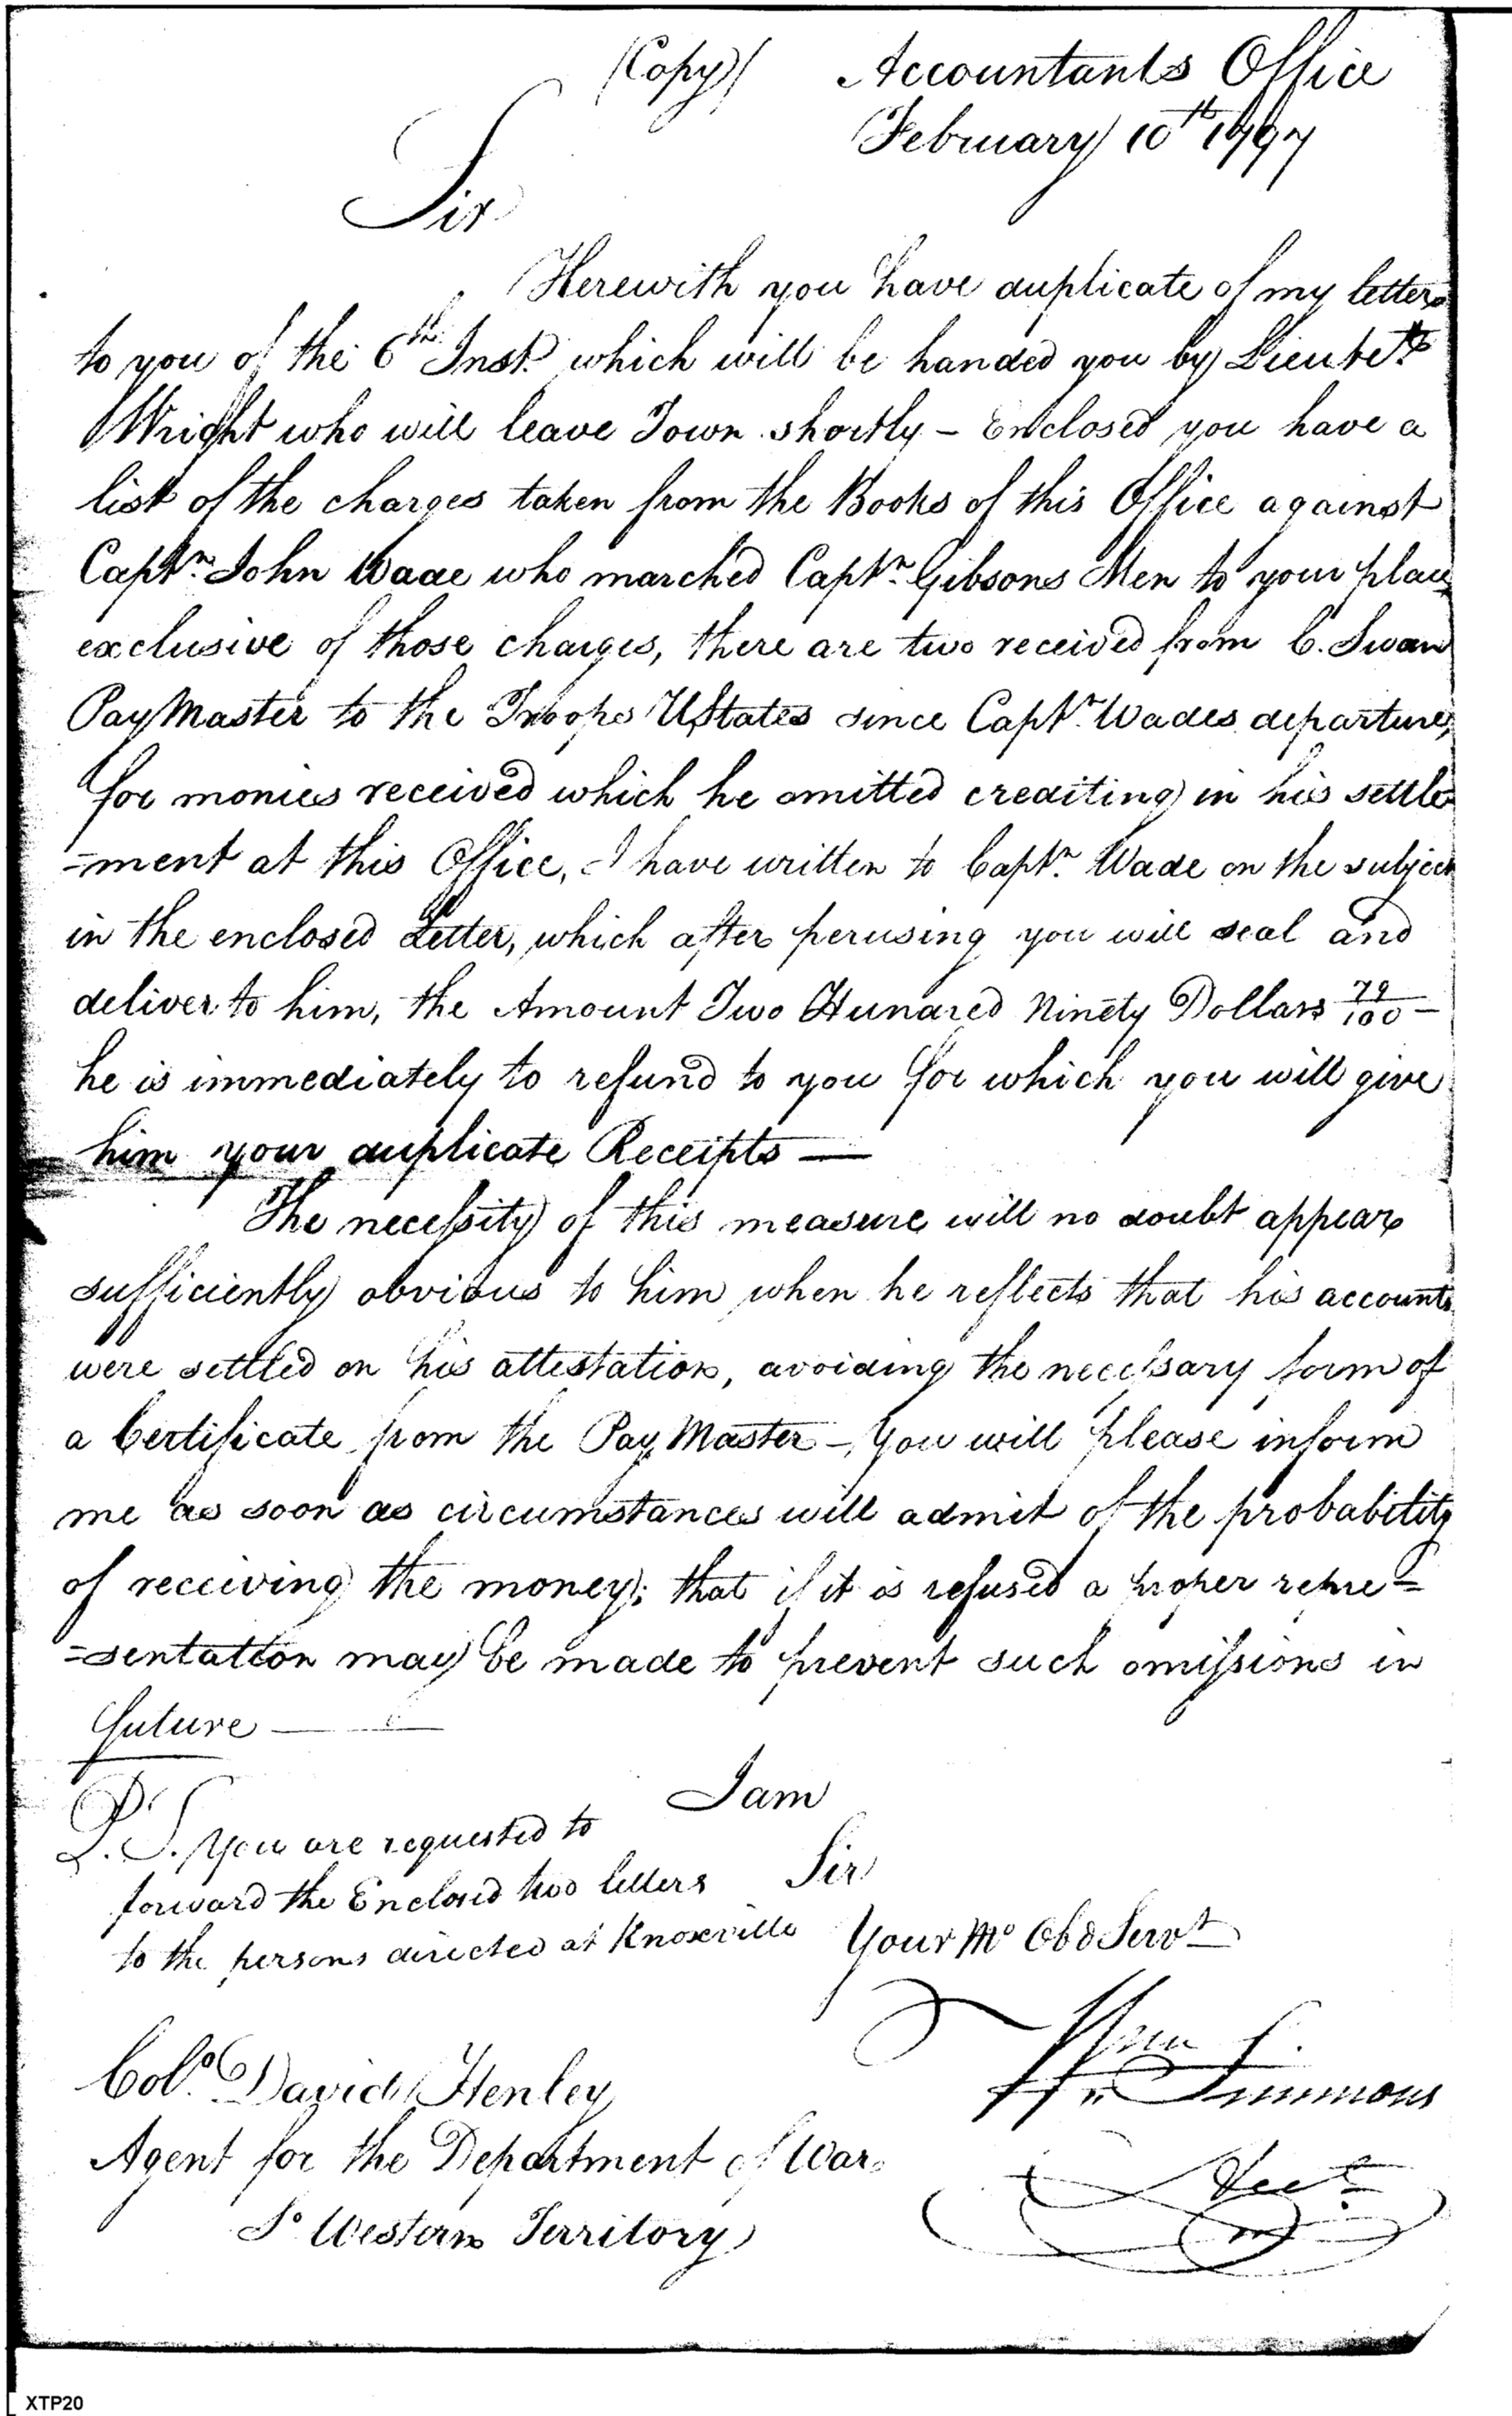 (Copy) Accountants Office
February 10th 1797
Sir
Herewith you have duplicate of my letter
to you of the 6th Inst. which will be handed you by Lieutet
Wright who will leave Town shortly – Enclosed you have a
list of the charges taken from the Books of this Office against
Captn. John Wade who marched Captn. Gibsons Men to your place
exclusive of those charges, there are two received from C. Swan
PayMaster to the Troops UStates since Captn. Wades departure,
for monies received which he omitted crediting in his settle
=ment at this Office, I have written to Captn. Wade on the subject
in the enclosed Letter, which after perusing you will seal and
deliver to him, the Amount Two Hundred Ninety Dollars 79/100 –
he is immediately to refund to you for which you will give
him your duplicate Receipts —
The necessity of this measure will no doubt appear
sufficiently obvious to him when he reflects that his accounts
were settled on his attestation, avoiding the necessary form of
a Certificate from the PayMaster – You will please inform
me as soon as circumstances will admit of the probability
of receiving the money; that if it is refused a proper repre=
=sentation may be made to prevent such omissions in
future —
I am
P.S. You are requested to
forward the Enclosed two letters
to the persons directed at Knoxville
Sir
Your Mo Obd Servt
Wm Simmons
Acct
Colo. David Henley
Agent for the Department of War
So Western Territory
XTP20